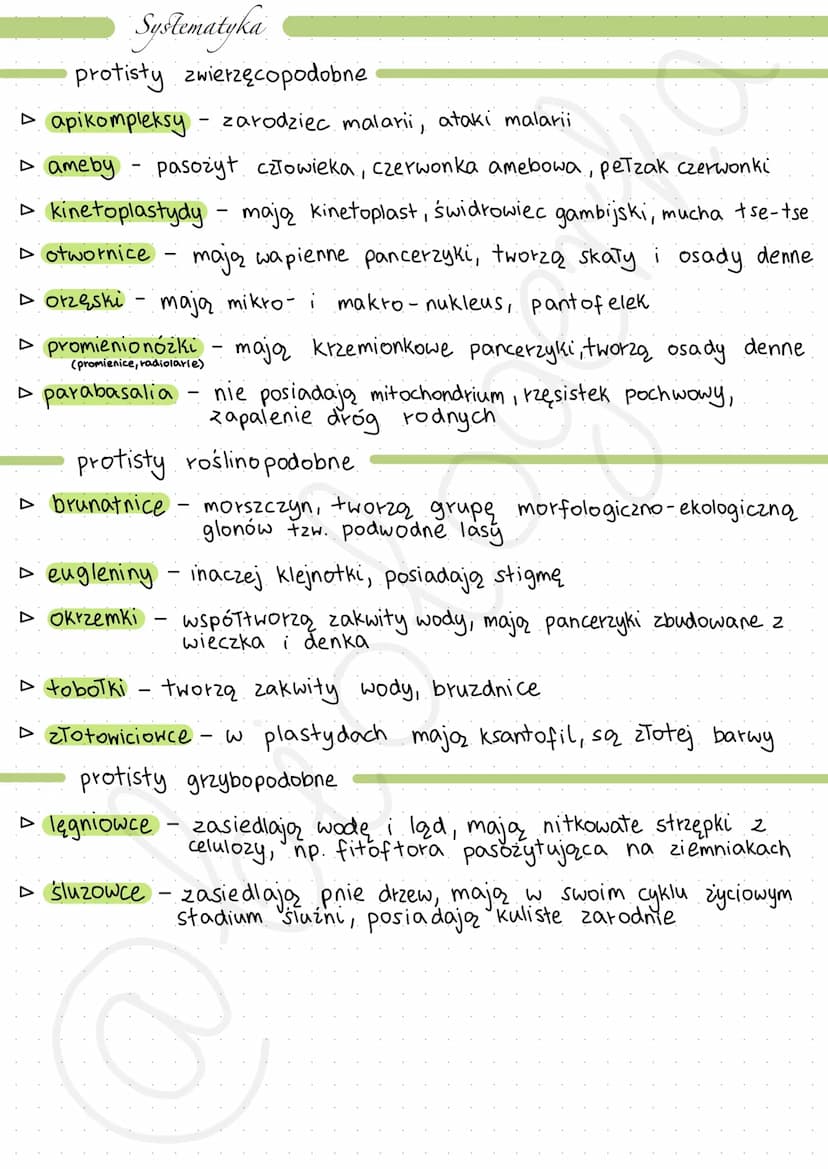 Systematyka
protisty zwierzęcopodobne
▷ apikompleksy - zarodziec malarii, ataki malarii
▷ ameby - pasożyt człowieka, czerwonka amebowa, pełzak czerwonki
▷ kinetoplastydy - mają kinetoplast, świdrowiec gambijski, mucha tse-tse
▷ otwornice - mają wapienne pancerzyki, tworzą skały i osady denne
▷ orzęski - mają mikro- i makro-nukleus, pantofelek
▷ promienionóżki - mają krzemionkowe pancerzyki, tworzą osady denne
(promienice, radiolarie)
▷ parabasalia - nie posiadają mitochondrium, rzęsistek pochwowy,
zapalenie dróg rodnych
protisty roślinopodobne
▷ brunatnice - morszczyn, tworzą grupę morfologiczno-ekologiczną
glonów tzw. podwodne lasy
▷ eugleniny - inaczej klejnotki, posiadają stigmę
▷ okrzemki - współtworzą zakwity wody, mają pancerzyki zbudowane z
wieczka i denka
▷ tobołki - tworzą zakwity wody, bruzdnice
▷ złotowiciowce - w plastydach mają ksantofil, są złotej barwy
protisty grzybopodobne
▷ lęgniowce - zasiedlają wodę i ląd, mają nitkowate strzępki z
celulozy, np. fitoftora pasożytująca na ziemniakach
▷ śluzowce - zasiedlają pnie drzew, mają w swoim cyklu życiowym
stadium śluźni, posiadają kuliste zarodnie